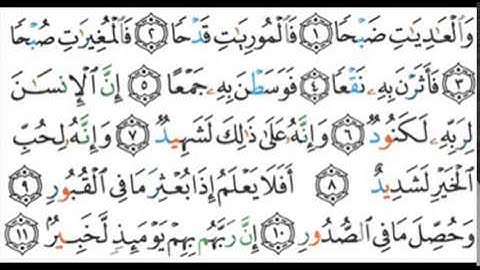 وَٱلْعَٰدِيَٰتِ ضَبْحًا ١ فَٱلْمُورِيَٰتِ قَدْحًا ٢ فَٱلْمُغِيرَٰتِ صُبْحًا
٣ فَأَثَرْنَ بِهِۦ نَقْعًا ٤ فَوَسَطْنَ بِهِۦ جَمْعًا ٥ إِنَّ ٱلْإِنسَٰنَ
لِرَبِّهِۦ لَكَنُودٌ ٦ وَإِنَّهُۥ عَلَىٰ ذَٰلِكَ لَشَهِيدٌ ٧ وَإِنَّهُۥ لِحُبِّ
ٱلْخَيْرِ لَشَدِيدٌ ٨ أَفَلَا يَعْلَمُ إِذَا بُعْثِرَ مَا فِى ٱلْقُبُورِ ٩
وَحُصِّلَ مَا فِى ٱلصُّدُورِ ١٠ إِنَّ رَبَّهُم بِهِمْ يَوْمَئِذٍ لَّخَبِيرٌۢ ١١